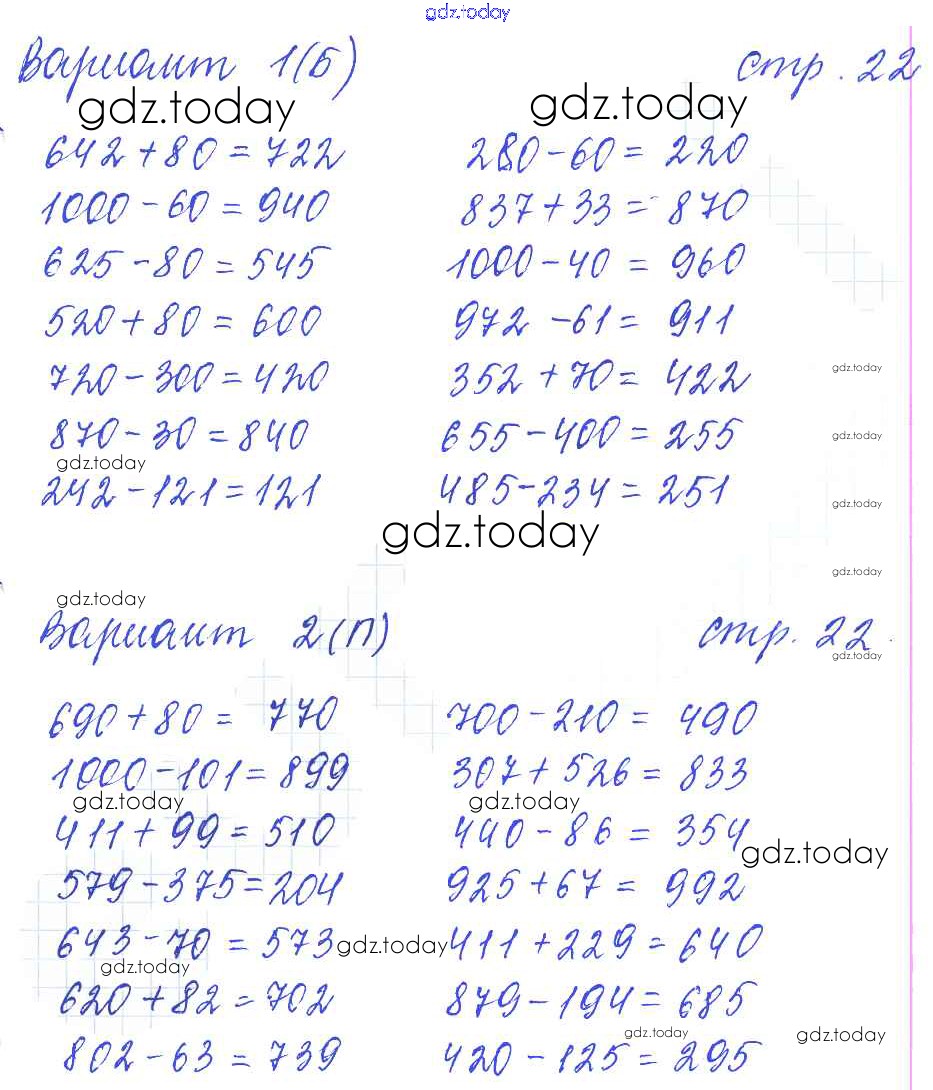 gdz.today
Вариант 1(Б) стр. 22
gdz.today gdz.today
642 + 80 = 722 280 - 60 = 220
1000 - 60 = 940 837 + 33 = 870
625 - 80 = 545 1000 - 40 = 960
520 + 80 = 600 972 - 61 = 911
720 - 300 = 420 352 + 70 = 422
gdz.today
870 - 30 = 840 655 - 400 = 255
gdz.today gdz.today
242 - 121 = 121 485 - 234 = 251
gdz.today
gdz.today
gdz.today
gdz.today
Вариант 2(П) стр. 22.
gdz.today
690 + 80 = 770 700 - 210 = 490
1000 - 101 = 899 307 + 526 = 833
gdz.today gdz.today
411 + 99 = 510 440 - 86 = 354
gdz.today
579 - 375 = 204 925 + 67 = 992
643 - 70 = 573 gdz.today 411 + 229 = 640
gdz.today
620 + 82 = 702 879 - 194 = 685
gdz.today gdz.today
802 - 63 = 739 420 - 125 = 295